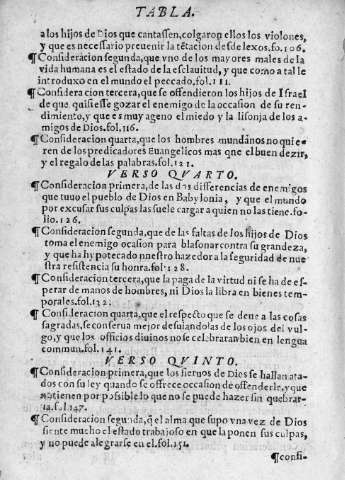 TABLA.
a los hijos de Dios que cantassen, colgaron ellos los violones,
y que es necessario preuenir la tẽtacion desde lexos. fo. 106.
¶Consideracion segunda, que vno de los mayores males de la
vida humana es el estado de la esclauitud, y que como a tal le
introduxo en el mundo el peccado. fol. 111.
¶Consideracion tercera, que se offendieron los hijos de Israel
de que quisiesse gozar el enemigo de la occasion de su ren-
dimiento, y que es muy ageno el miedo y la lisonja de los a-
migos de Dios. fol. 116.
¶Consideracion quarta, que los hombres mundanos no quie
ren de los predicadores Euangelicos mas que el buen dezir,
y el regalo de las palabras. fol. 121.
VERSO QVARTO.
¶Consideracion primera, de las dos differencias de enemigos
que tuuo el pueblo de Dios en Babylonia, y que el mundo
por excusar sus culpas las suele cargar a quien no las tiene. fo-
lio. 126.
¶Consideracion segunda, que de las faltas de los hijos de Dios
toma el enemigo ocasion para blasonar contra su grandeza,
y que ha hypotecado nuestro hazedor a la seguridad de nue
stra resistencia su honra. fol. 128.
¶Consideracion tercera, que la paga de la virtud ni se ha de es-
perar de manos de hombres, ni Dios la libra en bienes tem-
porales. fol. 132.
¶Consideracion quarta, que el respecto que se deue a las cosas
sagradas, se conserua mejor desuiandolas de los ojos del vul-
go, y que los officios diuinos no se celebraran bien en lengua
commun. fol. 141.
VERSO QVINTO.
¶Consideracion primera, que los sieruos de Dios se hallan ata-
dos con su ley quando se offrece occasion de offenderle, y que
no tienen por possible lo que no se puede hazer sin quebrar-
la. fol. 147.
¶Consideracion segunda, q̃ el alma que supo vna vez de Dios
siente mucho el estado trabajoso en que la ponen sus culpas,
y no puede alegrarse en el. fol. 151.
¶consi-